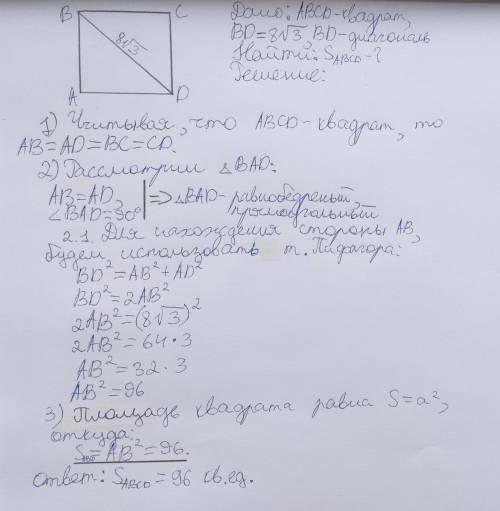 B C
8√3
A D
Дано: ABCD-квадрат,
BD=8√3, BD-диагональ
Найти: S_ABCD-?
Решение:
1) Учитывая, что ABCD-квадрат, то
AB=AD=BC=CD.
2) Рассмотрим △BAD:
AB=AD, | => △BAD-равнобедреный,
∠BAD=90° | прямоугольный
2.1. Для нахождения стороны AB,
будем использовать т. Пифагора:
BD²=AB²+AD²
BD²=2AB²
2AB²=(8√3)²
2AB²=64·3
AB²=32·3
AB²=96
3) Площадь квадрата равна S=a²,
откуда:
S=AB²=96.
ответ: S_ABCD=96 кв.ед.